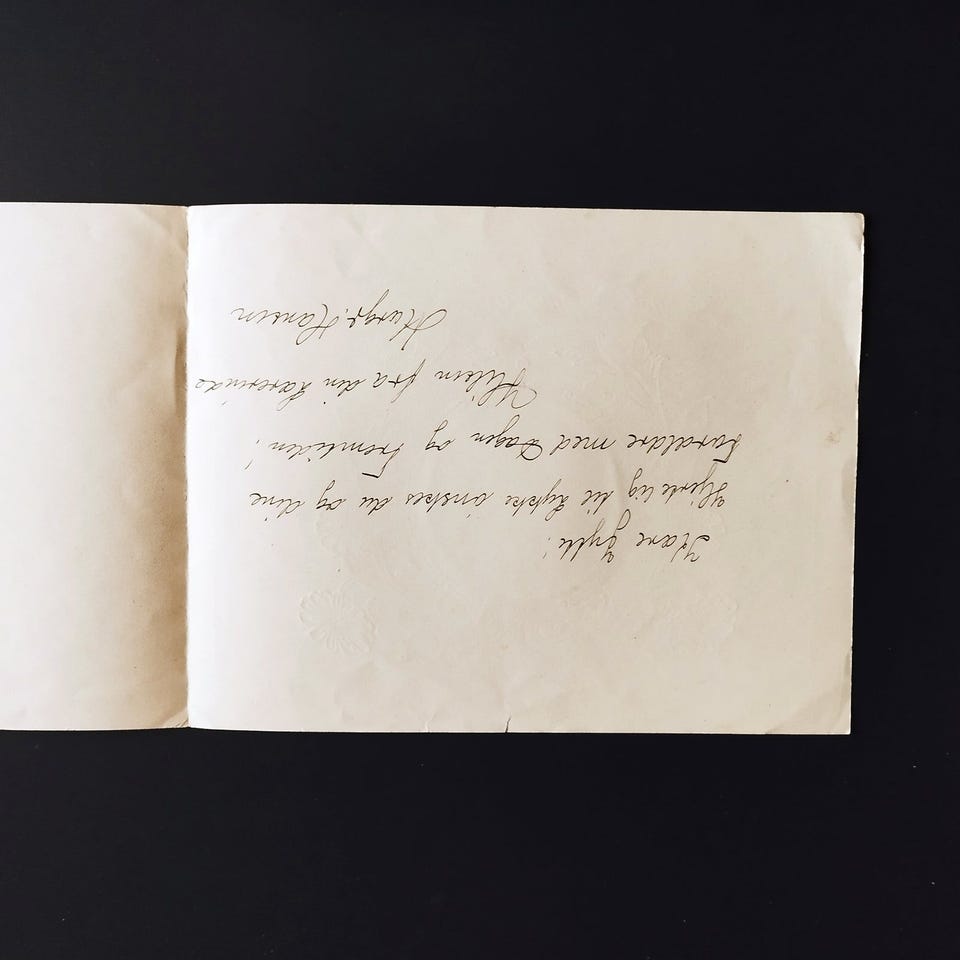 Kære Jytte!
Hjertelig til Lykke ønskes du og dine
Forældre med Dagen og Fremtiden!
Hilsen fra din Lærerinde
Margr. Hansen